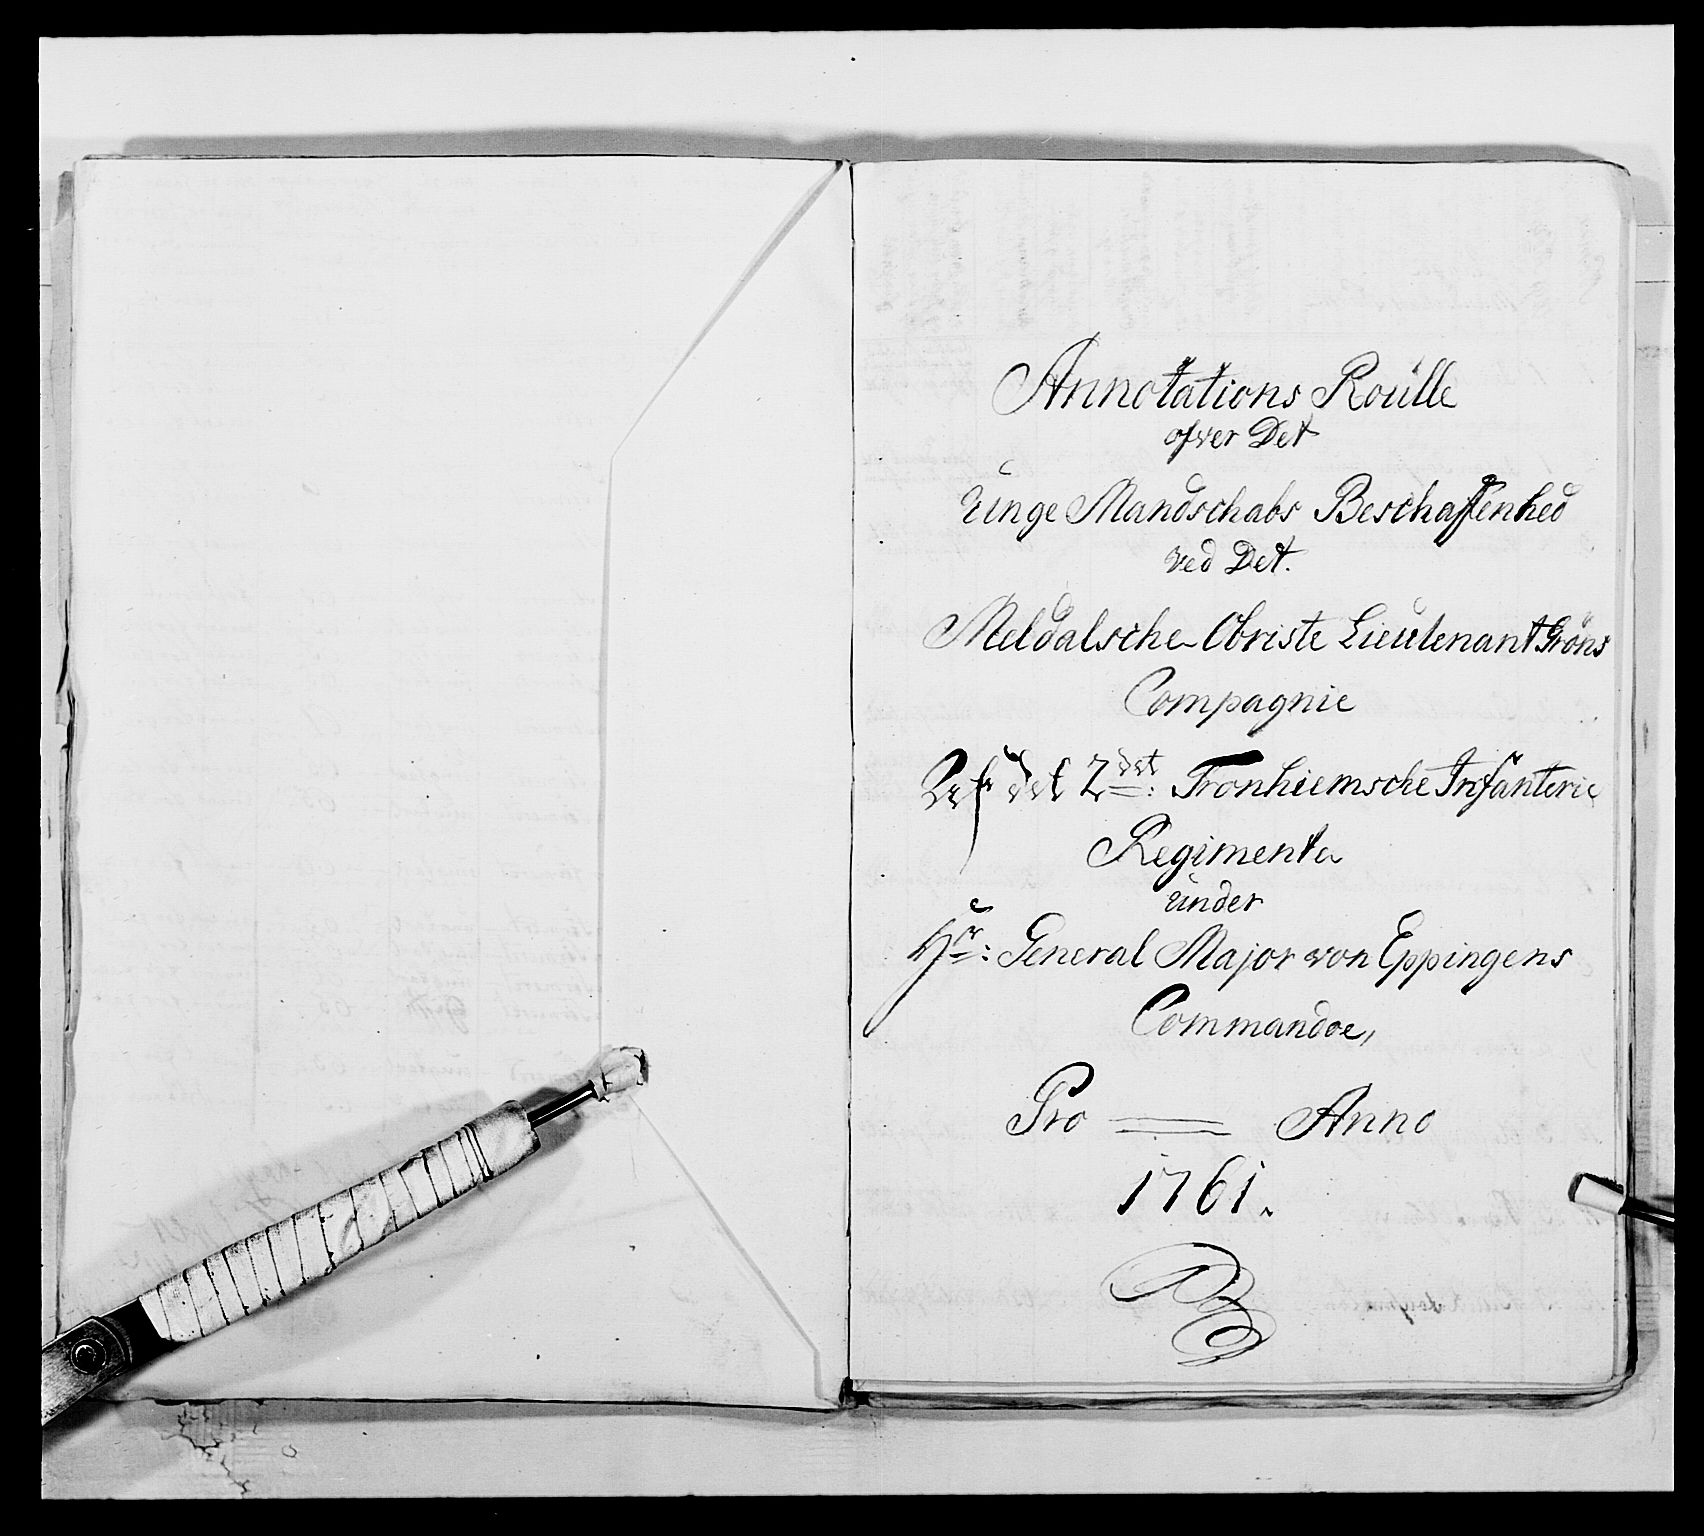 Annotations Roulle
ofver Det
Unge Mandschabs Beschaffenhed
ved Det.
Meldalsche Obriste Lieutenant Grøns
Compagnie
Af det 2det: Tronhiemsche Infanterie
Regimente
under
Hr: General Major von Eppingens
Commandoe,
Pro = Anno
1761.